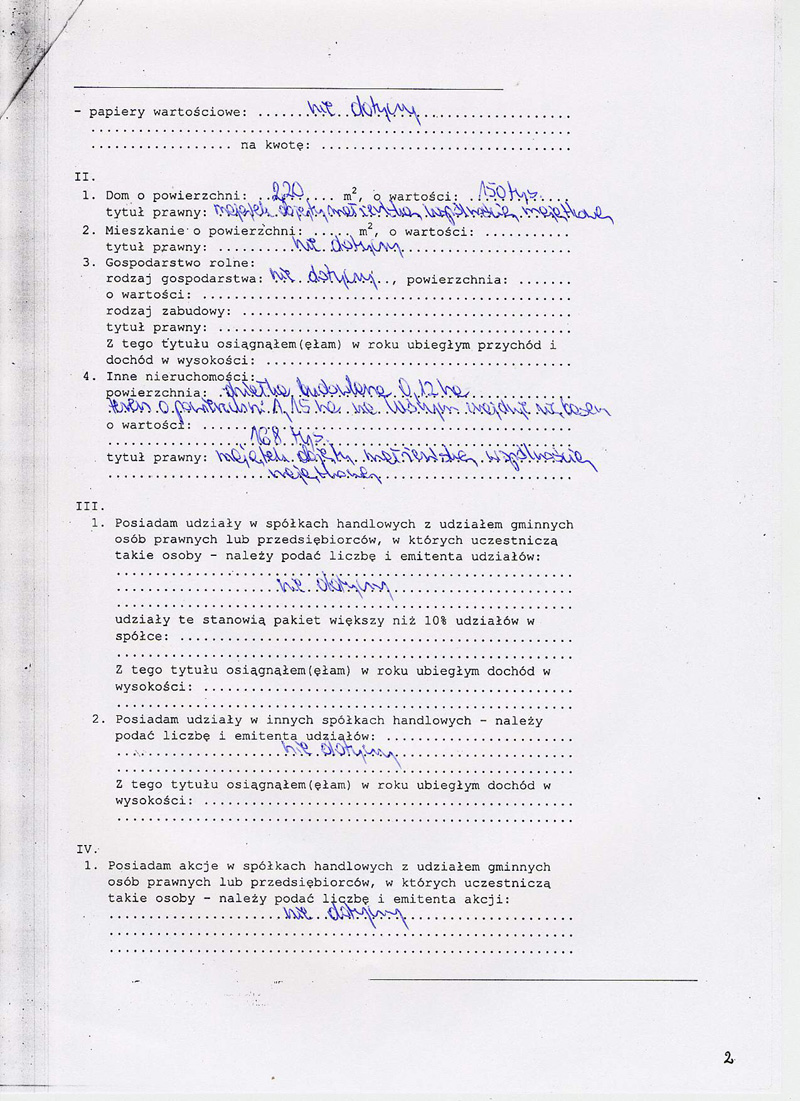 - papiery wartościowe: .......nie dotyczy...................
..............................................................
.................. na kwotę: ................................
II.
1. Dom o powierzchni: ...220..... m², o wartości: ..150 tys....
tytuł prawny: majątek objęty małżeńską wspólnością majątkową
2. Mieszkanie o powierzchni: ..... m², o wartości: ...........
tytuł prawny: .........nie dotyczy......................
3. Gospodarstwo rolne:
rodzaj gospodarstwa: nie dotyczy.., powierzchnia: .......
o wartości: ...............................................
rodzaj zabudowy: .........................................
tytuł prawny: .............................................
Z tego tytułu osiągnąłem(ęłam) w roku ubiegłym przychód i
dochód w wysokości: .......................................
4. Inne nieruchomości:
powierzchnia: .działka budowlana 0,12 ha..............
teren o powierzchni 1,15 ha na którym znajduje się basen
o wartości: ...............................................
..................168 tys................................
tytuł prawny: majątek objęty małżeńską wspólnością
.....................majątkową.........................
III.
1. Posiadam udziały w spółkach handlowych z udziałem gminnych
osób prawnych lub przedsiębiorców, w których uczestniczą
takie osoby - należy podać liczbę i emitenta udziałów:
..........................................................
.....................nie dotyczy.......................
..........................................................
udziały te stanowią pakiet większy niż 10% udziałów w
spółce: ..................................................
..........................................................
Z tego tytułu osiągnąłem(ęłam) w roku ubiegłym dochód w
wysokości: ...............................................
..........................................................
2. Posiadam udziały w innych spółkach handlowych - należy
podać liczbę i emitenta udziałów: ........................
.....................nie dotyczy.......................
..........................................................
Z tego tytułu osiągnąłem(ęłam) w roku ubiegłym dochód w
wysokości: ...............................................
..........................................................
IV.
1. Posiadam akcje w spółkach handlowych z udziałem gminnych
osób prawnych lub przedsiębiorców, w których uczestniczą
takie osoby - należy podać liczbę i emitenta akcji:
......................nie dotyczy......................
...........................................................
...........................................................
2